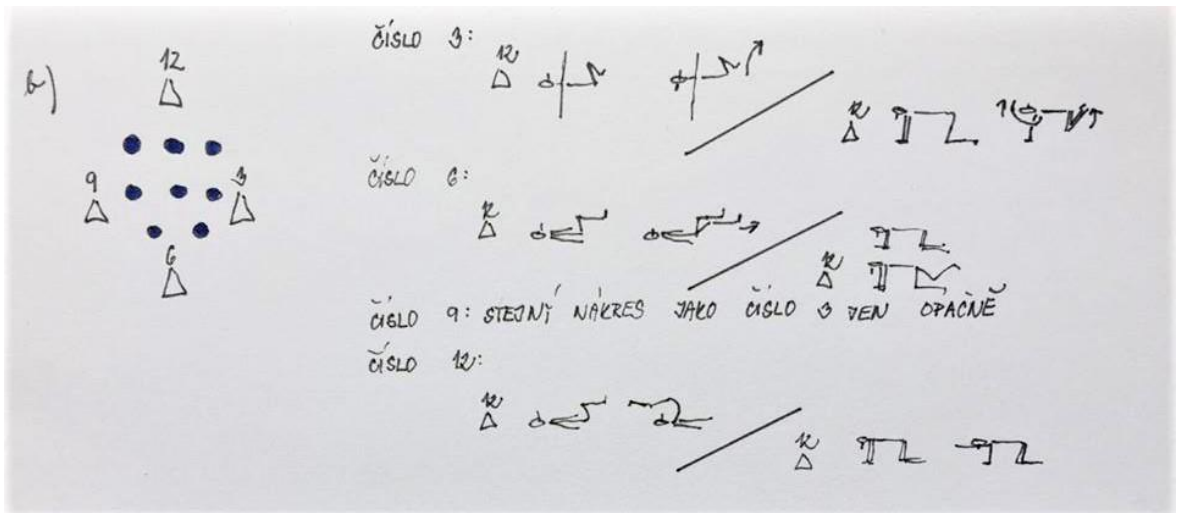 b)
12
9
3
6
ČÍSLO 3:
12
12
ČÍSLO 6:
12
12
ČÍSLO 9: STEJNÝ NÁKRES JAKO ČÍSLO 3 JEN OPAČNĚ
ČÍSLO 12:
12
12